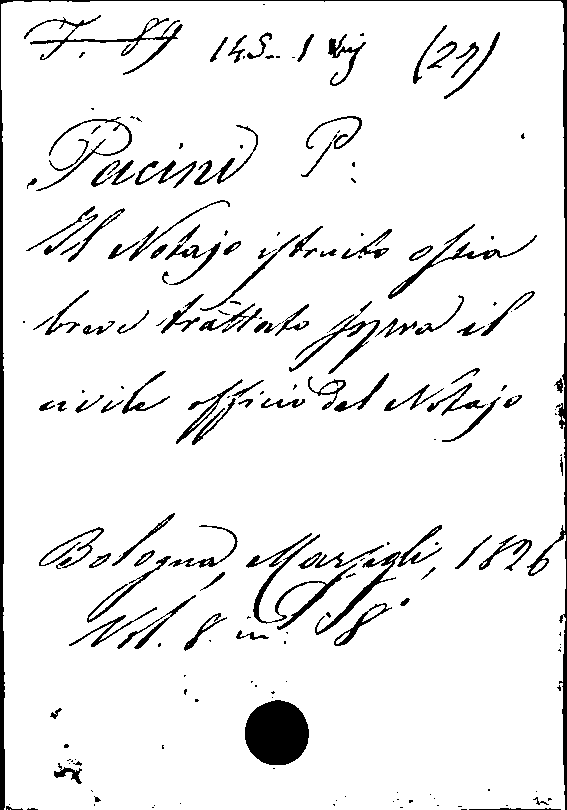 T. 89 145-1 (27)
Pacini P.
Il Notajo istruito ossia
breve trattato sopra il
civile officio del Notajo
Bologna, Marsigli, 1826
Vol. 8 in 8°